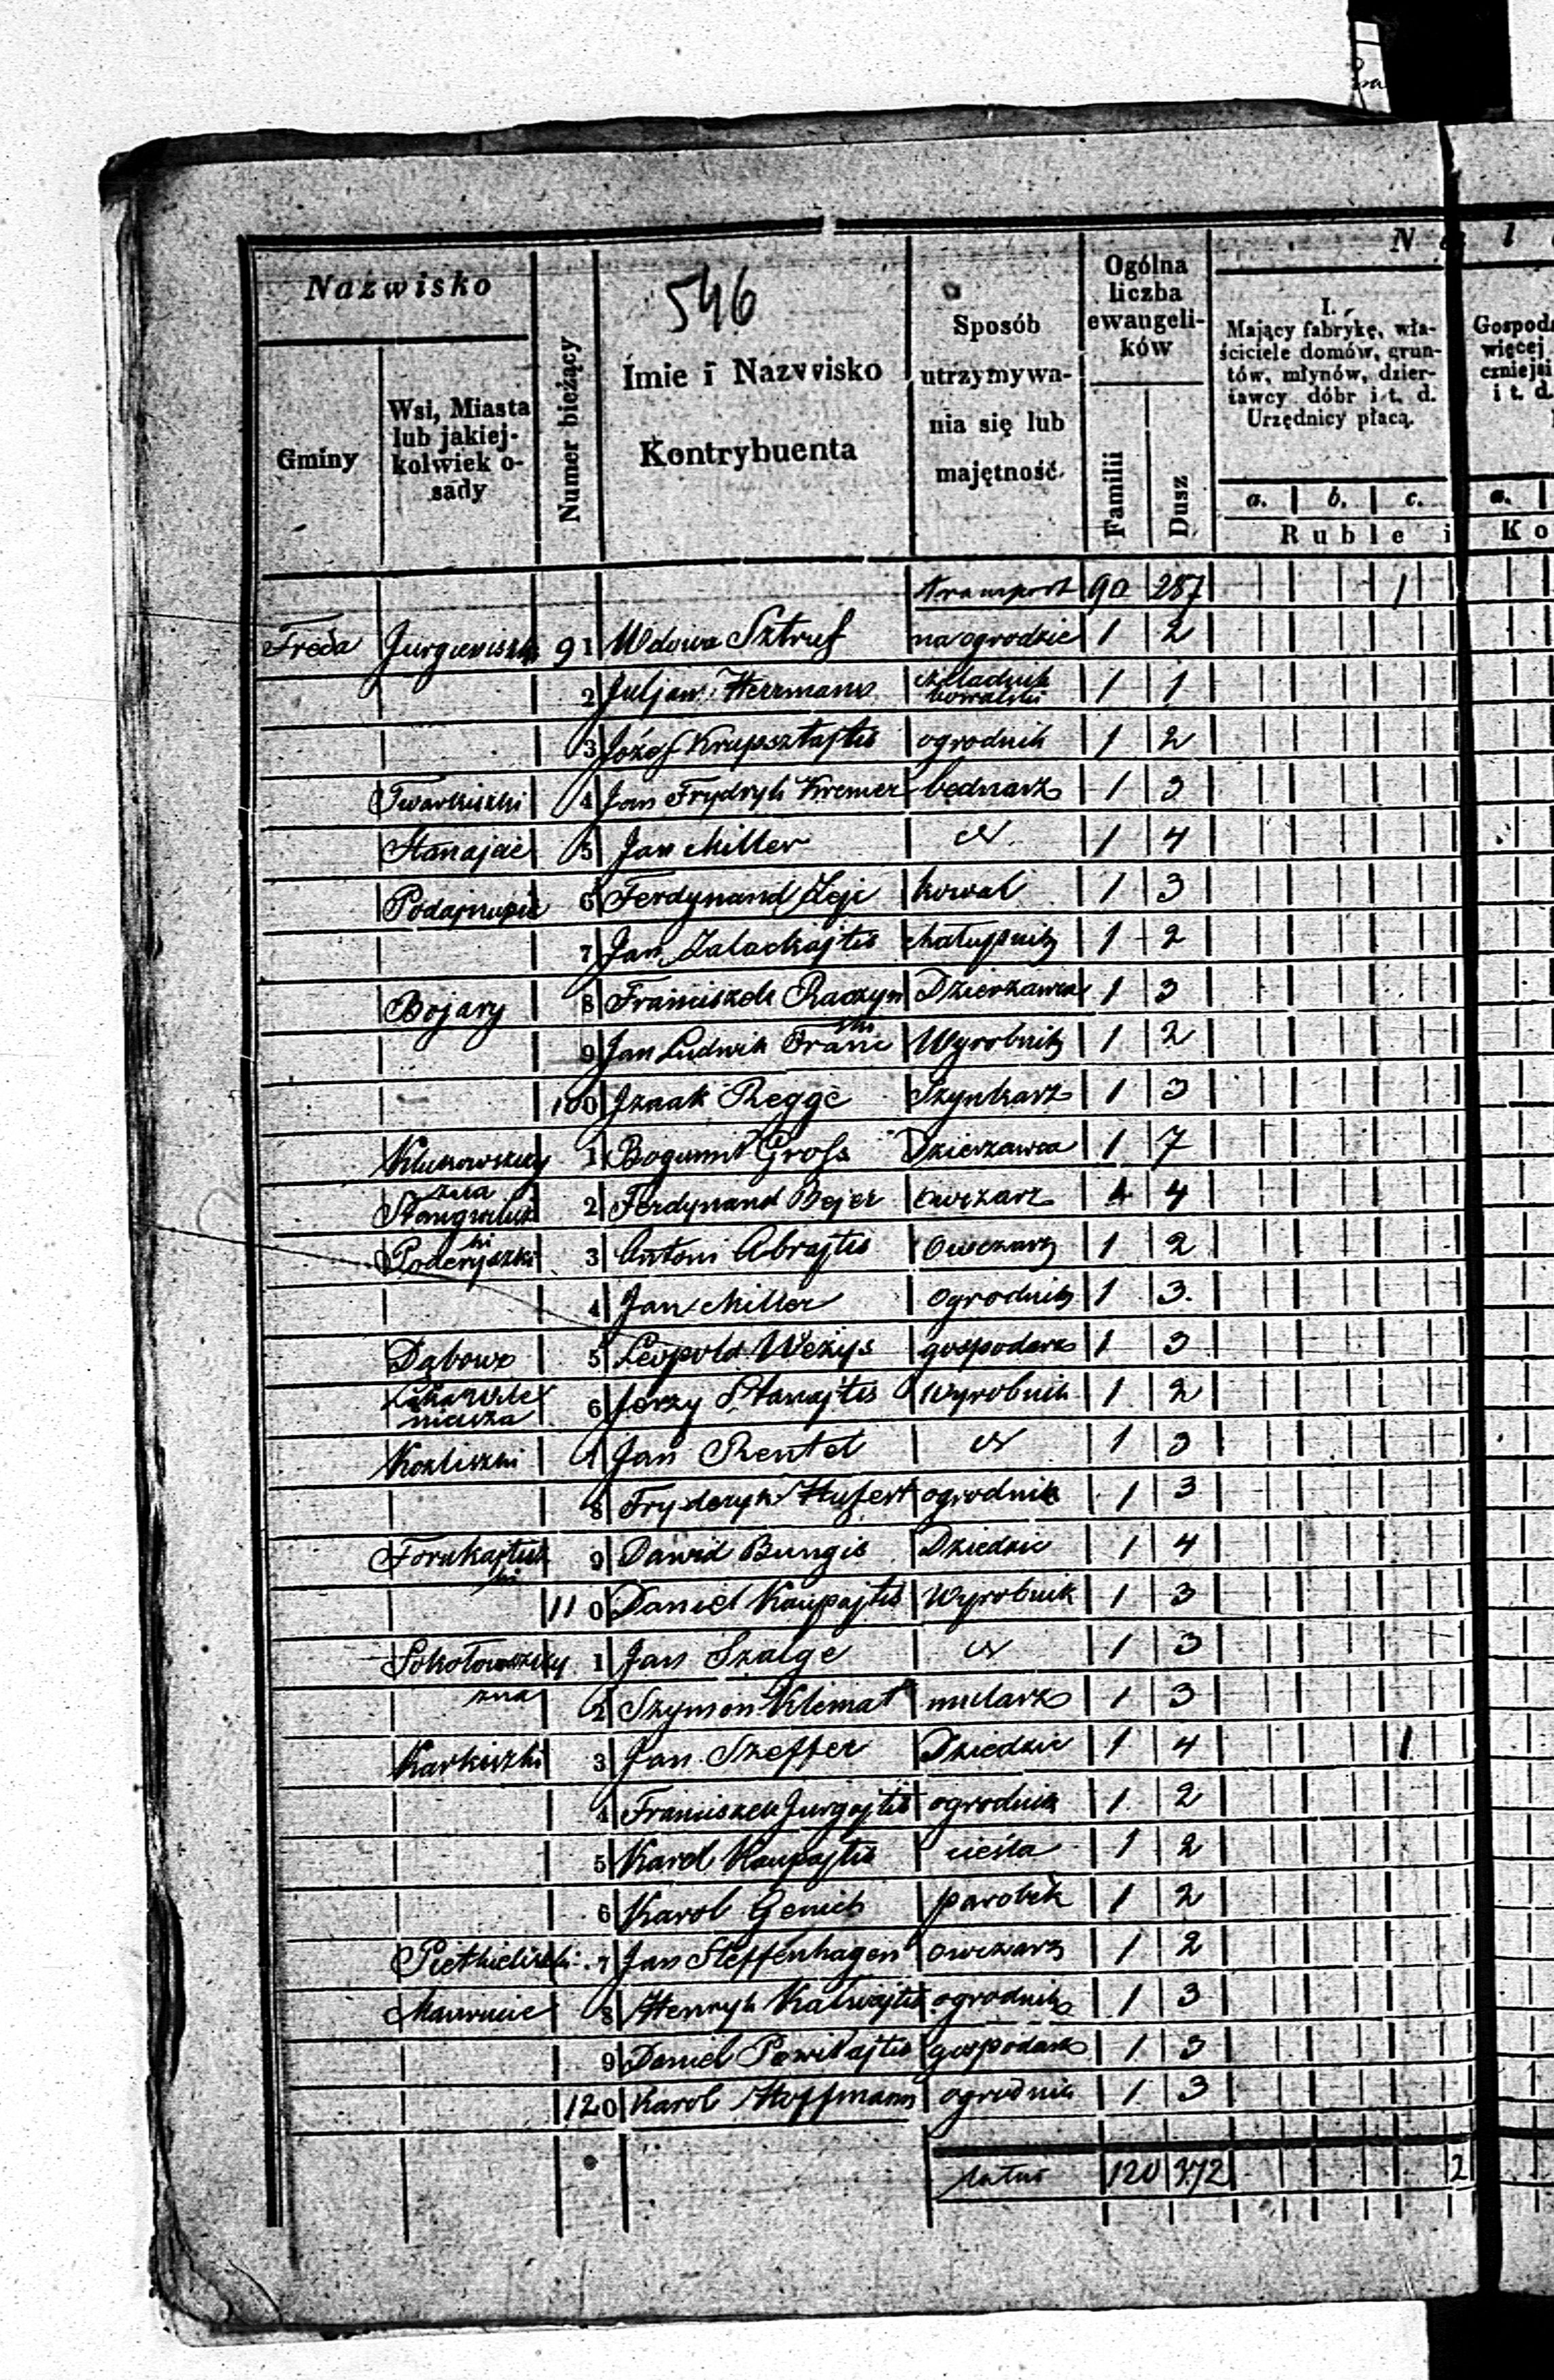 Nazwisko
546
Gminy
Wsi, Miasta lub jakiej-kolwiek o-sady
Numer bieżący
Imie i Nazwisko Kontrybuenta
Sposób utrzymywa-nia się lub majętność.
Ogólna liczba ewangeli-ków
Familii Dusz
N a l
I.
Mający fabrykę, wła-
ściciele domów, grun-
tów, młynów, dzier-
żawcy dóbr i t. d.
Urzędnicy płacą.
a. b. c.
Ruble i
Gospod
więcej
czniejsi
i t. d.
a.
Ko
transport 90 287 1
Freda 91 Wdowa Sztruf na ogrodzie 1 2
2 Juljan Herrmann czeladnik kowalski 1 1
3 Józef Krupsztajtis ogrodnik 1 2
Twarkiszki 4 Jan Frydryk Kremer bednarz 1 3
Stanajcie 5 Jan Miller 1 4
Podajnupie 6 Ferdynand Leje kowal 1 3
7 Jan chałupnik 1 2
Bojary 8 Franciszek Raczynski Dzierzawca 1 3
9 Jan Ludwik Wyrobnik 1 2
100 Izaak Regge Szynkarz 1 3
1 Bogumił Grofs Dzierzawca 1 7
2 Ferdynand Bejer owczarz 4
Poderyszki 3 Antoni Abrajtis Owczarz 1 2
4 Jan Miller Ogrodnik 1 3.
Dąbowo 5 Leopold Weżys gospodarz 1 3
6 Jerzy Stanajtis Wyrobnik 1 2
Kozliszki 7 Jan Rentel 1 3
8 Fryderyk Hufert ogrodnik 1 3
9 Dawid Bungis Dziedzic 1 4
110 Daniel Kaupajtis Wyrobnik 1 3
Sokołowszczy 1 Jan Szalge 1 3
zna 2 Szymon Klimat mularz 1 3
Karkiszki 3 Jan Szeffer Dziedzic 1 4 1
4 Franciszek Jurgajtis ogrodnik 1 2
5 Karol Kaupajtis cieśla 1 2
6 Karol Genich parobek 1 2
7 Jan Steffenhagen owczarz 1 2
Maurucie 8 Henryk Kalwajtis ogrodnik 1 3
9 Daniel Pawilajtis gospodarz 1 3
120 Karol Hoffmann ogrodnik 1 3
latus 120 372 2